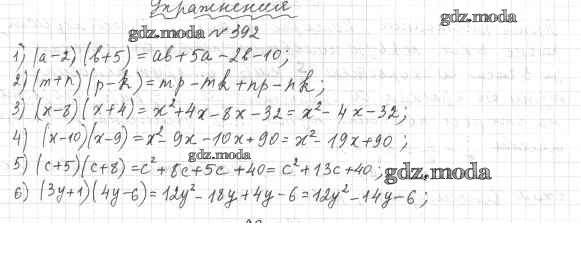 Упражнения
gdz.moda
gdz.moda № 392
1) (a-2)(b+5) = ab+5a-2b-10;
2) (m+n)(p-k) = mp-mk+np-nk;
3) (x-8)(x+4) = x²+4x-8x-32 = x²-4x-32;
4) (x-10)(x-9) = x²-9x-10x+90 = x²-19x+90;
gdz.moda
5) (c+5)(c+8) = c²+8c+5c+40 = c²+13c+40; gdz.moda
6) (3y+1)(4y-6) = 12y²-18y+4y-6 = 12y²-14y-6;